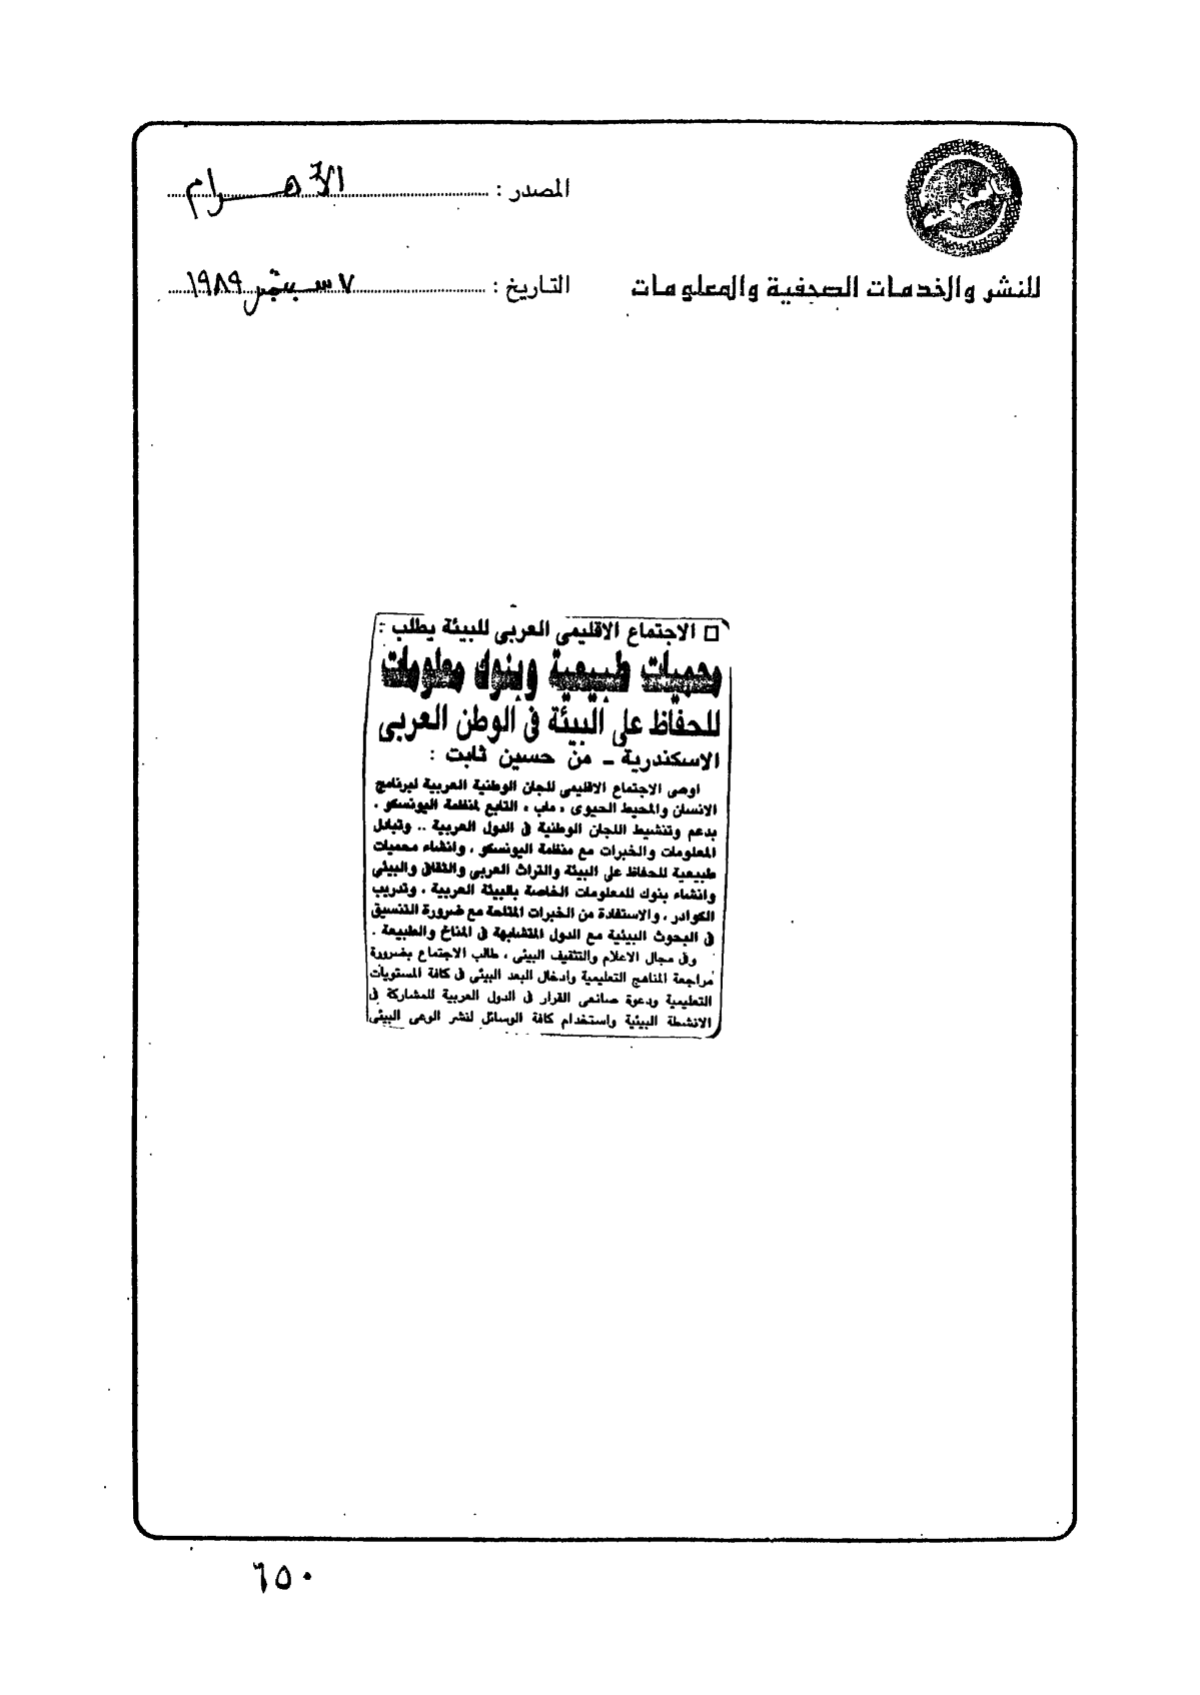 المصدر : الأهرام
للنشر والخدمات الصحفية والمعلومات
التاريخ : ٧ سبتمبر ١٩٨٩
□ الاجتماع الاقليمى العربى للبيئة يطلب :
محميات طبيعية وبنوك معلومات
للحفاظ على البيئة فى الوطن العربى
الاسكندرية ـ من حسين ثابت :
اوصى الاجتماع الاقليمى للجان الوطنية العربية لبرنامج
الانسان والمحيط الحيوى « ماب » التابع لمنظمة اليونسكو .
بدعم وتنشيط اللجان الوطنية فى الدول العربية .. وتبادل
المعلومات والخبرات مع منظمة اليونسكو ، وانشاء محميات
طبيعية للحفاظ على البيئة والتراث العربى والثقافى والبيئى
وانشاء بنوك للمعلومات الخاصة بالبيئة العربية ، وتدريب
الكوادر ، والاستفادة من الخبرات المتاحة مع ضرورة التنسيق
فى البحوث البيئية مع الدول المتشابهة فى المناخ والطبيعة .
وفى مجال الاعلام والتثقيف البيئى ، طالب الاجتماع بضرورة
مراجعة المناهج التعليمية وأدخال البعد البيئى فى كافة المستويات
التعليمية ودعوة صانعى القرار فى الدول العربية للمشاركة فى
الانشطة البيئية واستخدام كافة الوسائل لنشر الوعى البيئى
٦٥٠